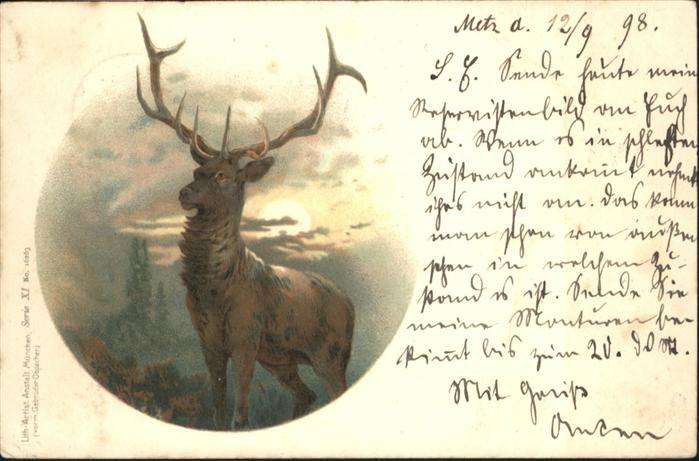 Metz d. 12/9 98.
L. E. Sende heute mein
Reservistenbild an Euch
ab. Wenn es in schlechten
Zustand ankommt nehmt
ihrs nicht an. das kann
man schon von außen
sehen in welchem Zu-
stand es ist. Sende Sie
meine Monturen be-
stimmt bis zum 20. d. M.
Mit Gruß
Lith. Artist. Anstalt München, Serie XI No.
(vorm. Gebrüder Obpacher)